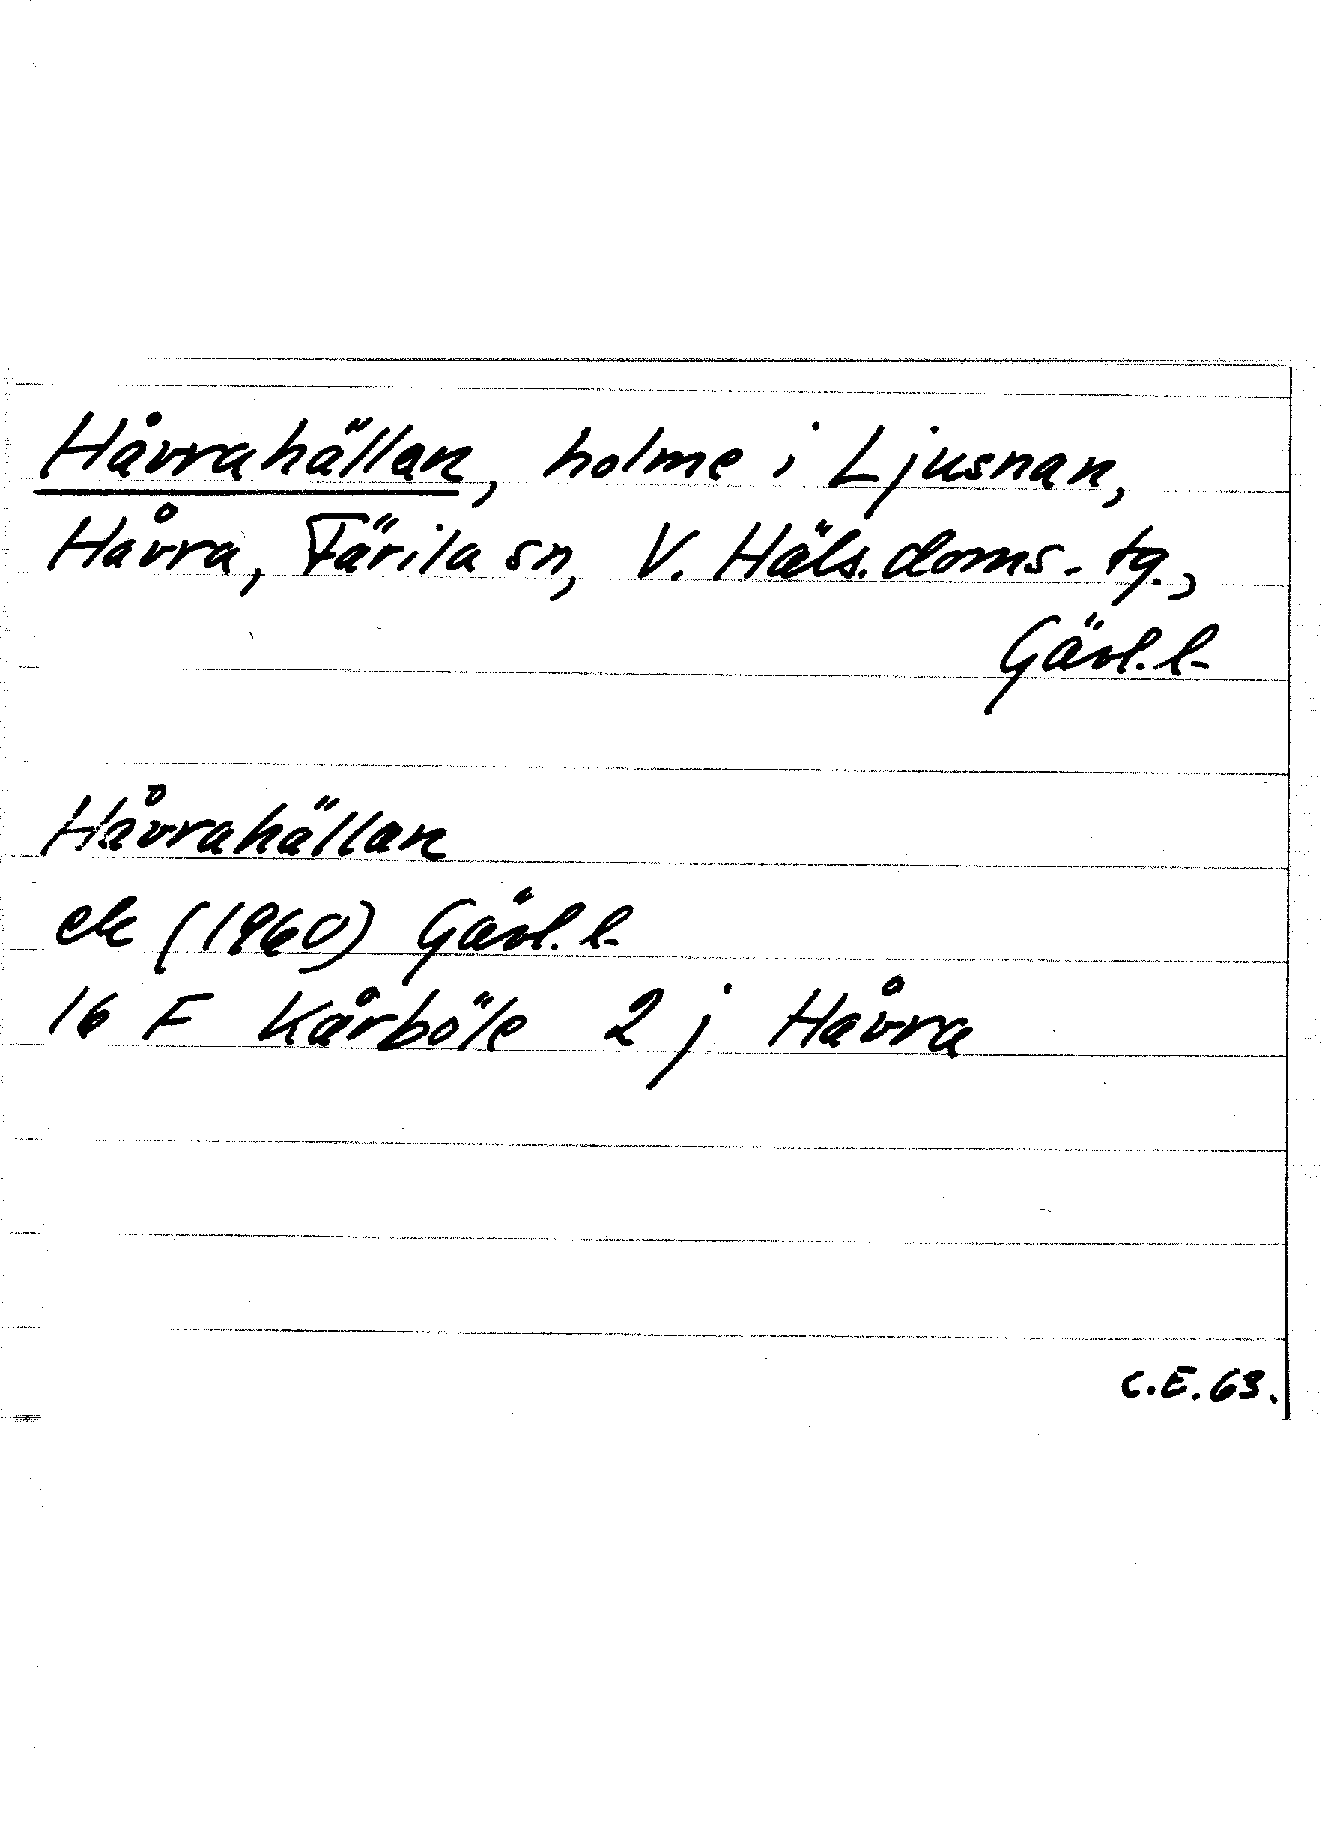 Håvrahällan, holme i Ljusnan,
Håvra, Färila sn, V. Häls. doms. tg.,
Gävl. l.
Håvrahällan
ek (1960) Gävl. l.
16 F Kårböle 2 j Håvra
C.E. 63.